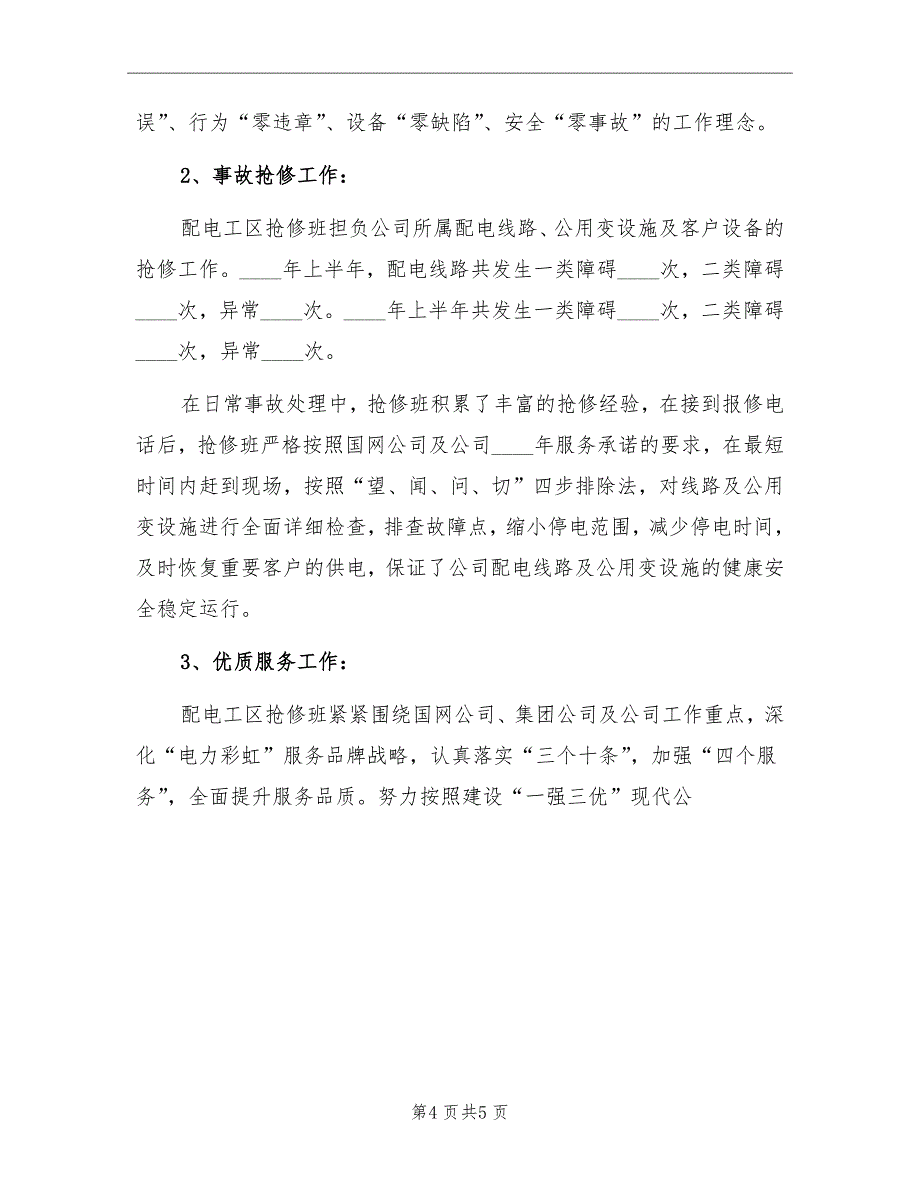 误”、行为“零违章”、设备“零缺陷”、安全“零事故”的工作理念。
2、事故抢修工作：
配电工区抢修班担负公司所属配电线路、公用变设施及客户设备的
抢修工作。____年上半年，配电线路共发生一类障碍____次，二类障碍
____次，异常____次。____年上半年共发生一类障碍____次，二类障碍
____次，异常____次。
在日常事故处理中，抢修班积累了丰富的抢修经验，在接到报修电
话后，抢修班严格按照国网公司及公司____年服务承诺的要求，在最短
时间内赶到现场，按照“望、闻、问、切”四步排除法，对线路及公用
变设施进行全面详细检查，排查故障点，缩小停电范围，减少停电时间，
及时恢复重要客户的供电，保证了公司配电线路及公用变设施的健康安
全稳定运行。
3、优质服务工作：
配电工区抢修班紧紧围绕国网公司、集团公司及公司工作重点，深
化“电力彩虹”服务品牌战略，认真落实“三个十条”，加强“四个服
务”，全面提升服务品质。努力按照建设“一强三优”现代公
第4 页共5 页